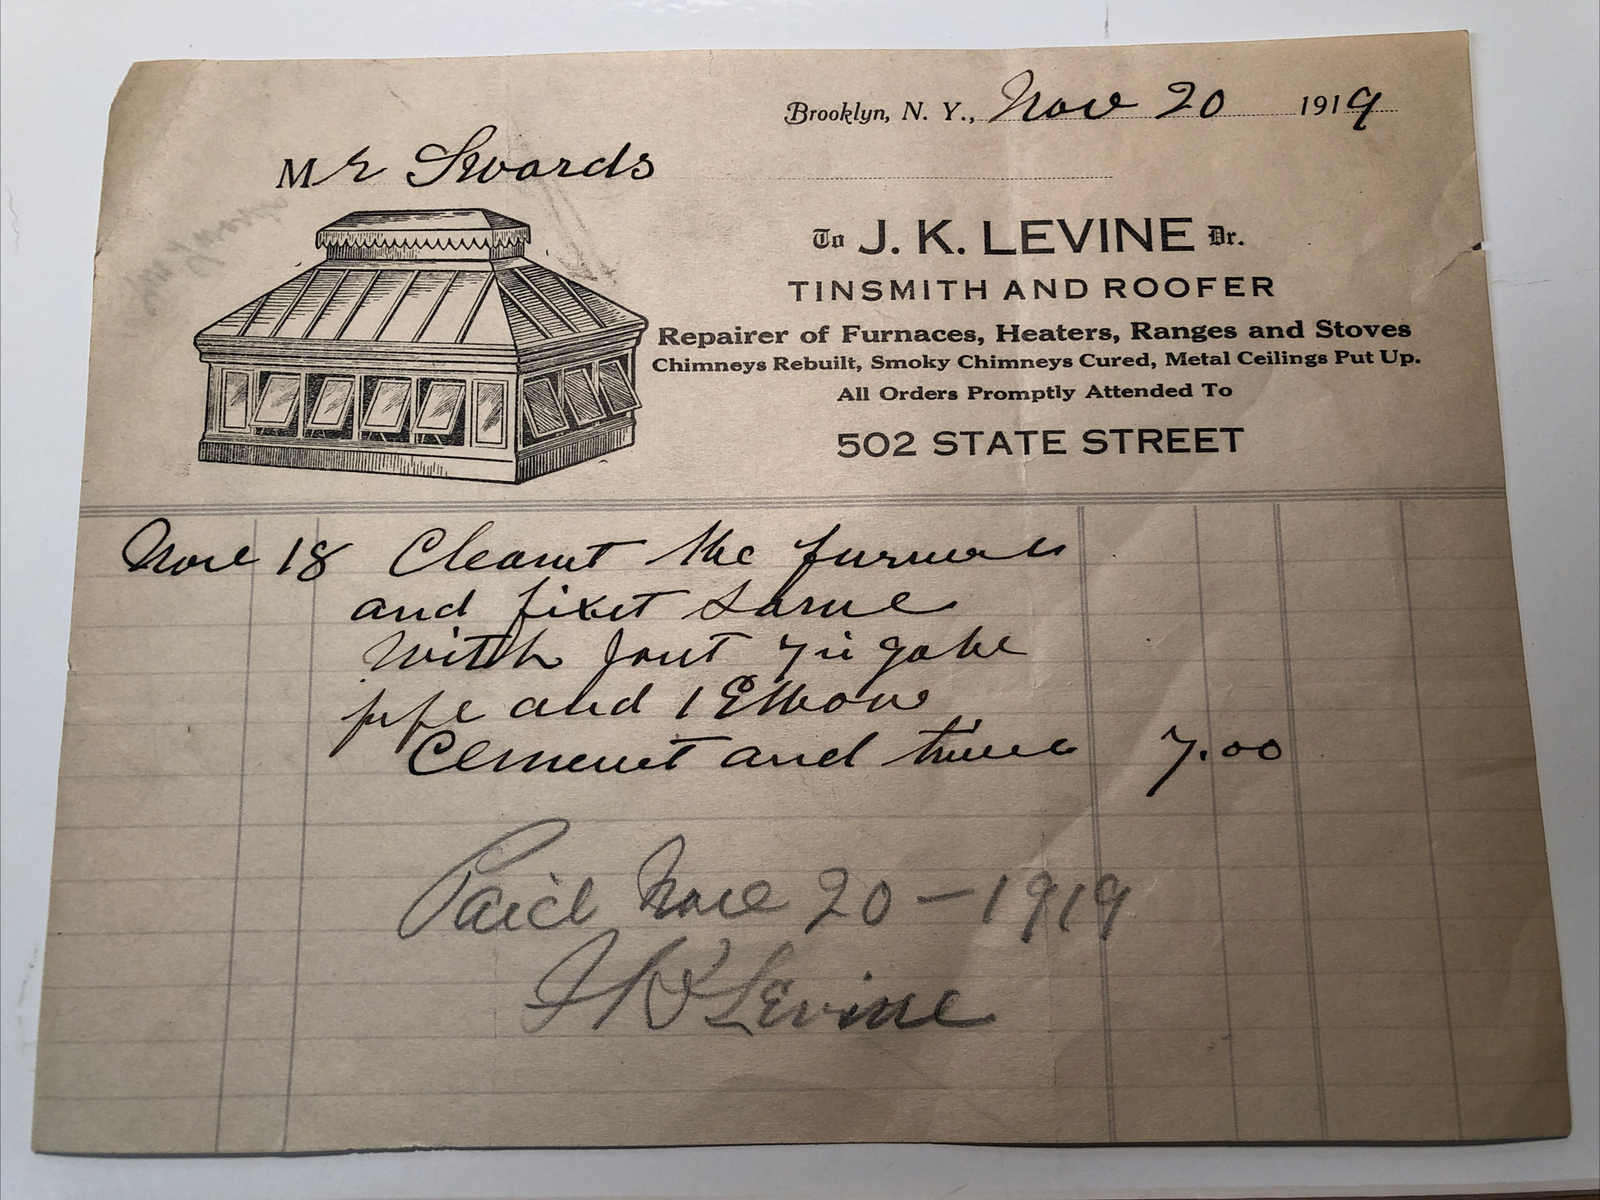 Brooklyn, N. Y., Nov 20 1919
Mr Swords
To J. K. LEVINE Dr.
TINSMITH AND ROOFER
Repairer of Furnaces, Heaters, Ranges and Stoves
Chimneys Rebuilt, Smoky Chimneys Cured, Metal Ceilings Put Up.
All Orders Promptly Attended To
502 STATE STREET
Nov 18 Cleant the furnace
and fixet same
With 7 in
pipe and 1 Elbow
Cement and 7.00
Paid Nov 20 - 1919
J K Levine